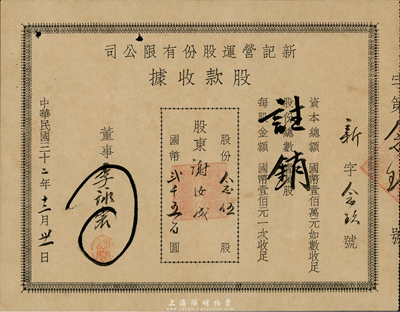 新記營運股份有限公司
股款收據
新字念玖號
資本總額 國幣壹佰萬元如數收足
股份總數 股
每股金額 國幣壹佰元一次收足
註銷
股份 念伍 股
股東 謝汝成
國幣 貳千五百 圓
董事
中華民國三十二年十二月卅一日
字第 號
上海陽明拍賣